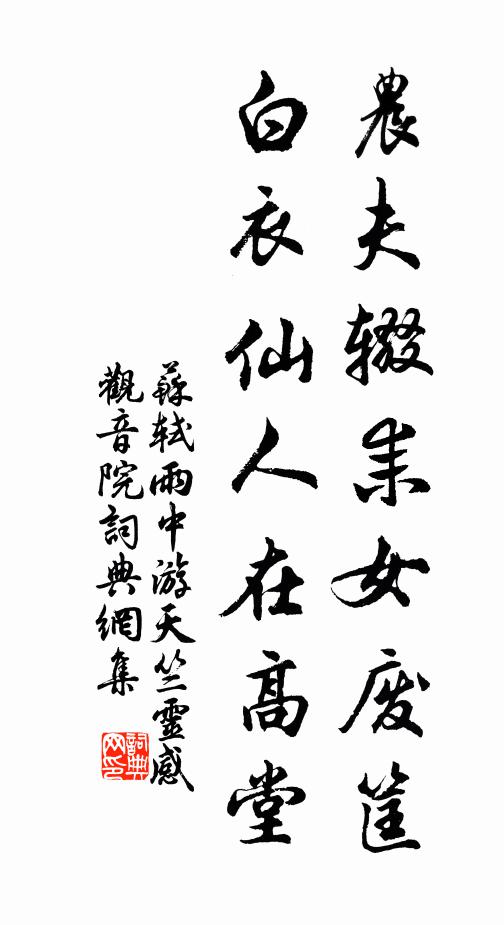 農夫辍耒女废筐
白衣仙人在高堂
蘇軾雨中游天竺靈感
觀音院詞典網集
詞典
网印